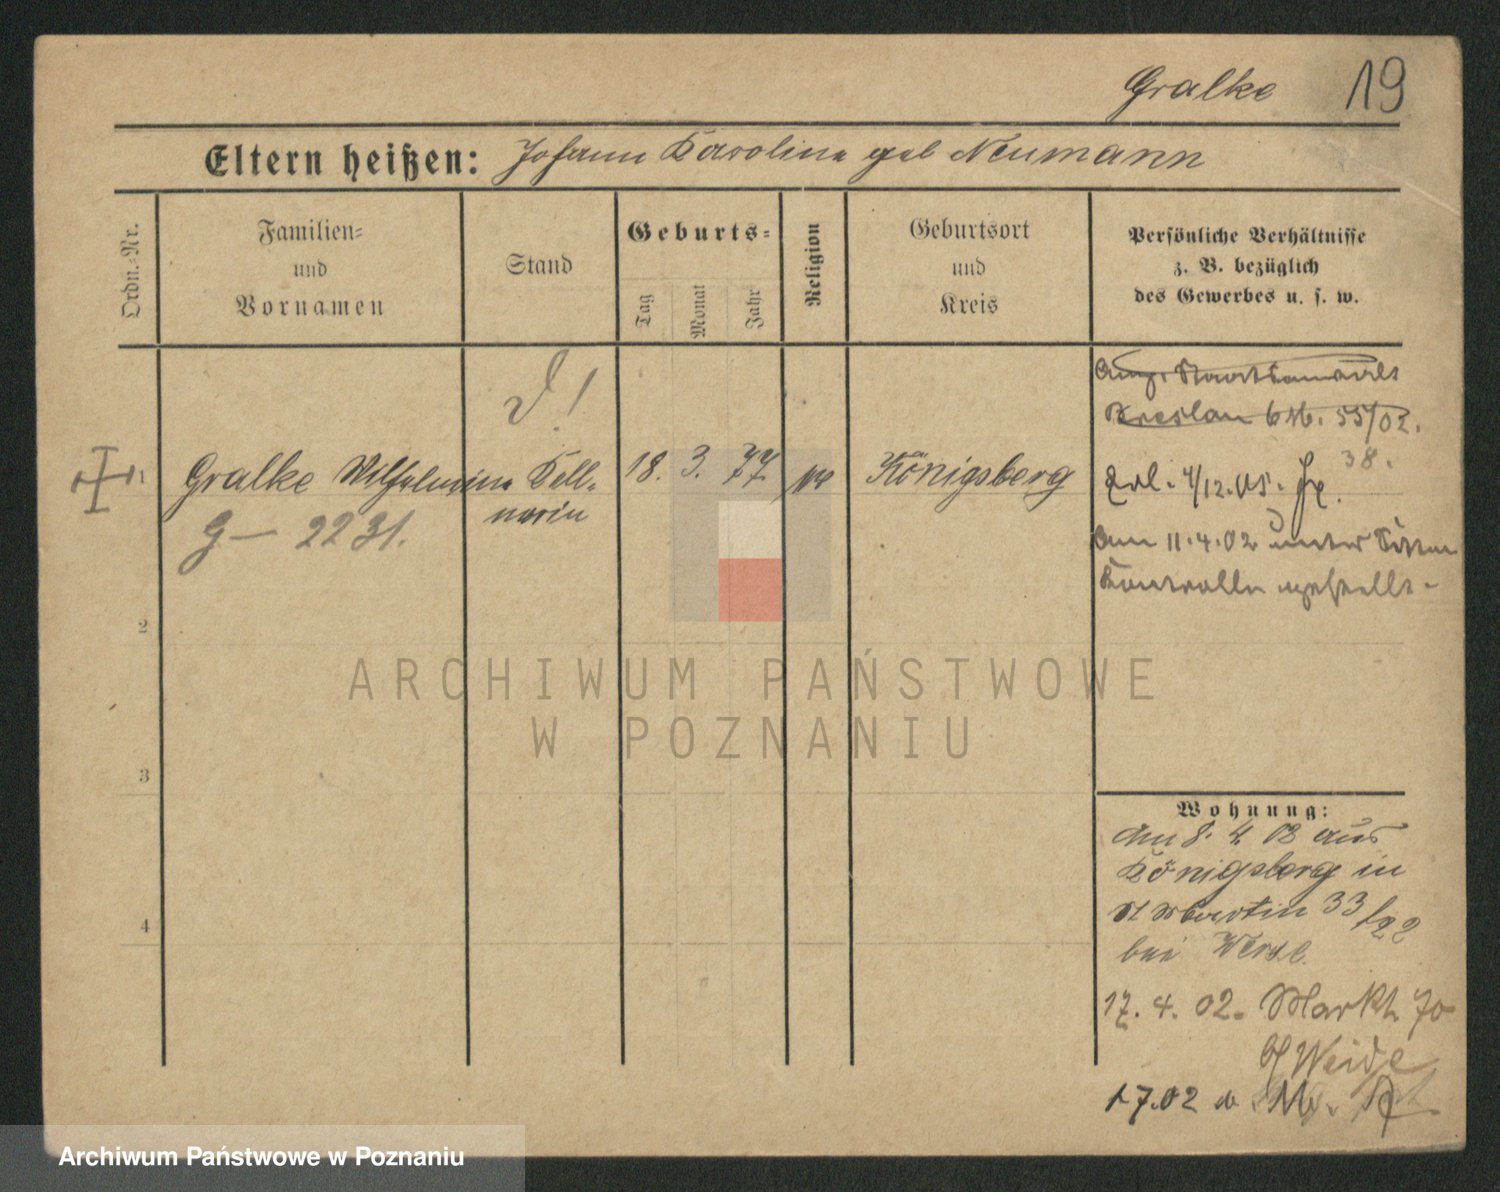 Gralke 19
Eltern heißen: Johann Karoline geb Neumann
Ordn.-Nr.
Familien-
und
Vornamen
Stand
Geburts-
Tag
Monat
Jahr
Religion
Geburtsort
und
Kreis
Persönliche Verhältnisse
z. B. bezüglich
des Gewerbes u. s. w.
Breslau 6 M. 55/02.
38.
1 Gralke Wilhelmine Kell-
nerin
18. 3. 77
Königsberg
G- 2231.
Erl. 4/12.05.
Am 11.4.02 unter Sitten
Kontrolle gestellt.
2
3
4
ARCHIWUM PAŃSTWOWE
W POZNANIU
Wohnung:
Am 8. 4. 02 aus
Königsberg in
St Martin 33/22
bei
17. 4. 02. Markt 70
b/ Weide
1.7.02
Archiwum Państwowe w Poznaniu